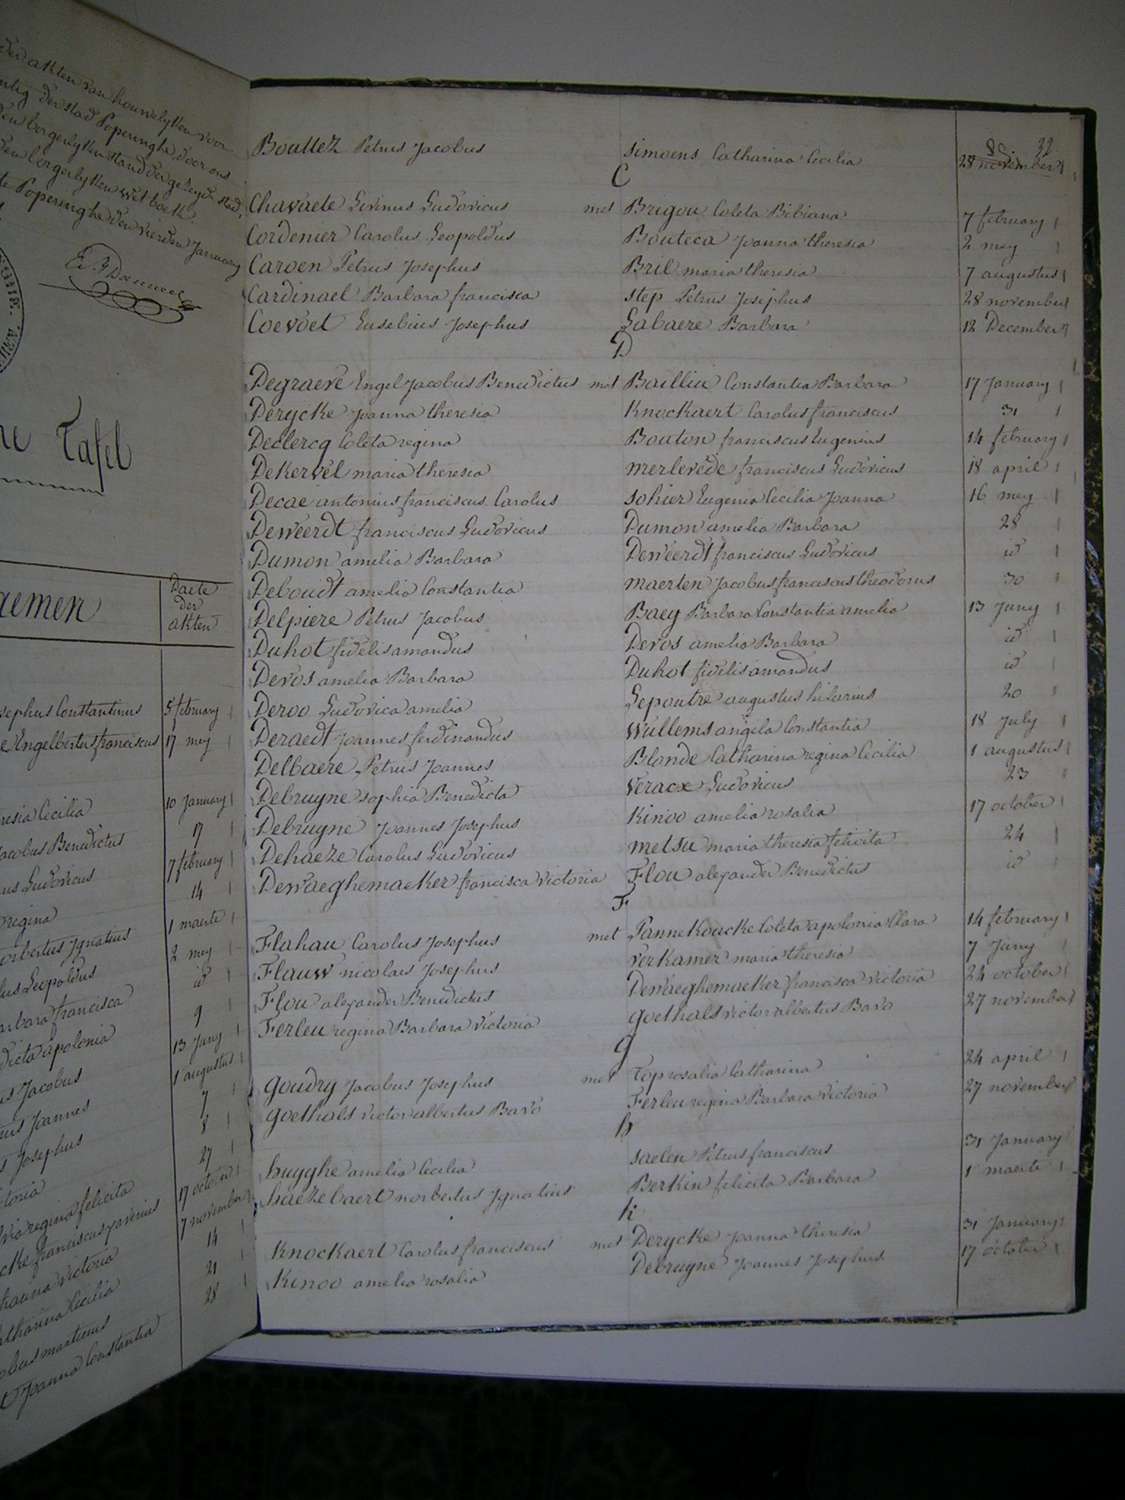 der akten van houwelyken voor
der stad Poperinghe door ons
den borgerlyken stand der gezeyde stad,
den borgerlyken wetboek
te Poperinghe den vierden January
Tafel
aemen
Daete
der
akten
sephus Constantinus 5 february
e Engelbertus franciscus 17 mey
resia Cecilia 10 January
acobus Benedictus 17
us Ludovicus 7 february
regina 14
orbertus Ignatius 1 maerte
lus Leopoldus 2 mey
arbara francisca id
dicta apolonia 9
us Jacobus 13 Juny
rus Joannes 1 augustus
s Josephus 7
ctoria 8
ria regina felicita 27
cke franciscus xaverius 17 october
hanna Victoria 7 november
atharina Cecilia 14
obus martinus 21
Joanna Constantia 28
22
Bouttez Petrus Jacobus simoens Catharina Cecilia 28 november
C
Chavaete Livinus Ludovicus met Brigou Coleta Bibiana 7 february
Cordenier Carolus Leopoldus Bouteca Joanna theresia 2 mey
Caroen Petrus Josephus Bril maria theresia 7 augustus
Cardinael Barbara francisca step Petrus Josephus 28 november
Coevoet Eusebius Josephus Labaere Barbara 12 December
D
Degraeve Engel Jacobus Benedictus met Bailliu Constantia Barbara 17 January
Derycke Joanna theresia Knockaert Carolus franciscus 31
Declercq Coleta regina Bouton franciscus Eugenius 14 february
Dekervel maria theresia merlevede franciscus Ludovicus 18 april
Decae antonius franciscus Carolus sohier Eugenia Cecilia Joanna 16 mey
Deweerdt franciscus Ludovicus Dumon amelia Barbara 28
Dumon amelia Barbara Deweerdt franciscus Ludovicus id
Deboudt amelia Constantia maerten Jacobus franciscus theodorus 30
Delpiere Petrus Jacobus Baey Barbara Constantia amelia 13 Juny
Duhot fidelis amandus Devos amelia Barbara id
Devos amelia Barbara Duhot fidelis amandus id
Deroo Ludovica amelia Lepoutre augustus hilarius 20
Deraedt Joannes ferdinandus Willems angela Constantia 18 July
Delbaere Petrus Joannes Blonde Catharina regina Cecilia 1 augustus
Debruyne sophia Benedicta Verace Ludovicus 23
Debruyne Joannes Josephus Kinoo amelia rosalia 17 october
Dehaeze Carolus Ludovicus metsu maria theresia felicita 24
Dewaeghemaeker francisca Victoria Flou alexander Benedictus id
F
Flahau Carolus Josephus met Pannekoucke Coleta apolonia Clara 14 february
Flauw nicolaus Josephus Verkamer maria theresia 7 Juny
Flou alexander Benedictus Dewaeghemaeker francisca Victoria 24 october
Ferleu regina Barbara Victoria goethals victor albertus Bavo 27 november
g
goudry Jacobus Josephus met Top rosalia Catharina 24 april
goethals victor albertus Bavo Ferleu regina Barbara Victoria 27 november
h
huyghe amelia Cecilia saelen Petrus franciscus 31 January
haezebaert norbertus Ignatius Berkin felicita Barbara 1 maerte
k
Knockaert Carolus franciscus met Derycke Joanna theresia 31 January
Kinoo amelia rosalia Debruyne Joannes Josephus 17 october